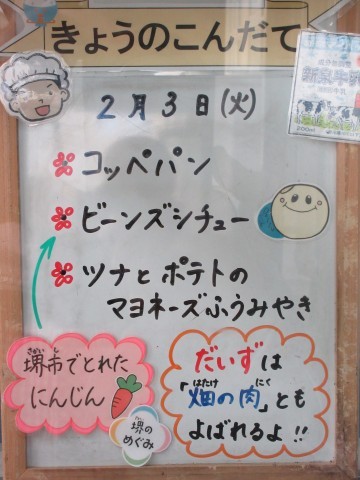 きょうのこんだて
2月3日(火)
コッペパン
ビーンズシチュー
ツナとポテトの
マヨネーズふうみやき
堺市でとれた
にんじん
堺の
めぐみ
だいずは
「畑の肉」とも
よばれるよ!!